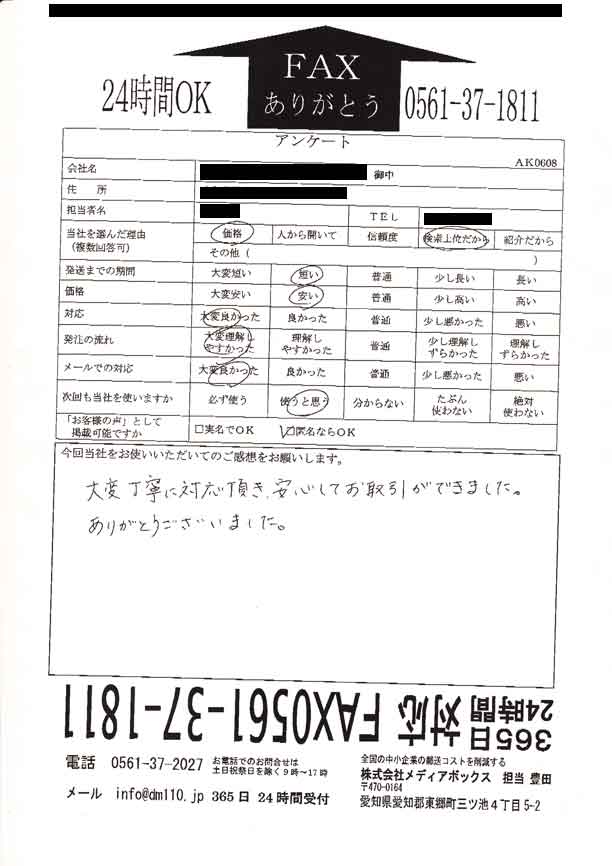 24時間OK
FAX
ありがとう
0561-37-1811
アンケート
AK0608
会社名 御中
住 所
担当者名 TEL
当社を選んだ理由 (複数回答可) 価格 人から聞いて 信頼度 検索上位だから 紹介だから
その他( )
発送までの期間 大変短い 短い 普通 少し長い 長い
価格 大変安い 安い 普通 少し高い 高い
対応 大変良かった 良かった 普通 少し悪かった 悪い
発注の流れ 大変理解しやすかった 理解しやすかった 普通 少し理解しずらかった 理解しずらかった
メールでの対応 大変良かった 良かった 普通 少し悪かった 悪い
次回も当社を使いますか 必ず使う 使うと思う 分からない たぶん使わない 絶対使わない
「お客様の声」として掲載可能ですか □実名でOK ☑匿名ならOK
今回当社をお使いいただいてのご感想をお願いします。
大変丁寧に対応頂き、安心してお取引ができました。
ありがとうございました。
365日 24時間 対応 FAX0561-37-1811
電話 0561-37-2027 お電話でのお問合せは
土日祝祭日を除く9時~17時
メール info@dm110.jp 365日 24時間受付
全国の中小企業の郵送コストを削減する
株式会社メディアボックス 担当 豊田
〒470-0164
愛知県愛知郡東郷町三ツ池4丁目5-2